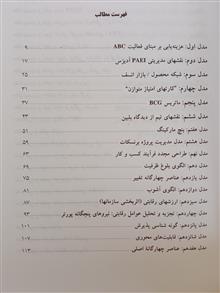 فهرست مطالب
مدل اول: هزینه‌یابی بر مبنای فعالیت ABC ۹
مدل دوم: نقشهای مدیریتی PAEI آدیزس ۱۷
مدل سوم: شبکه محصول / بازار انسف ۲۵
مدل چهارم: "کارتهای امتیاز متوازن" ۳۱
مدل پنجم: ماتریس BCG ۳۷
مدل ششم: نقشهای تیم از دیدگاه بلبین
مدل هفتم: بنچ مارکینگ ۵۱
مدل هشتم: مدل مدیریت پروژه برنسکات ۵۹
مدل نهم: طراحی مجدد فرآیند کسب و کار ۶۳
مدل دهم: الگوی بلوغ ظرفیت ۶۹
مدل یازدهم: عناصر چهارگانه تغییر ۷۷
مدل دوازدهم: الگوی آشوب ۸۱
مدل سیزدهم: ارزشهای رقابتی (اثربخشی سازمانها) ۸۷
مدل چهاردهم: تجزیه و تحلیل عوامل رقابتی: نیروهای پنجگانه پورتر ۹۳
مدل پانزدهم: گونه شناسی پذیرش ۱۰۱
مدل شانزدهم: قابلیت‌های محوری ۱۰۷
مدل هفدهم: عناصر چهارگانۀ اصلی ۱۱۳